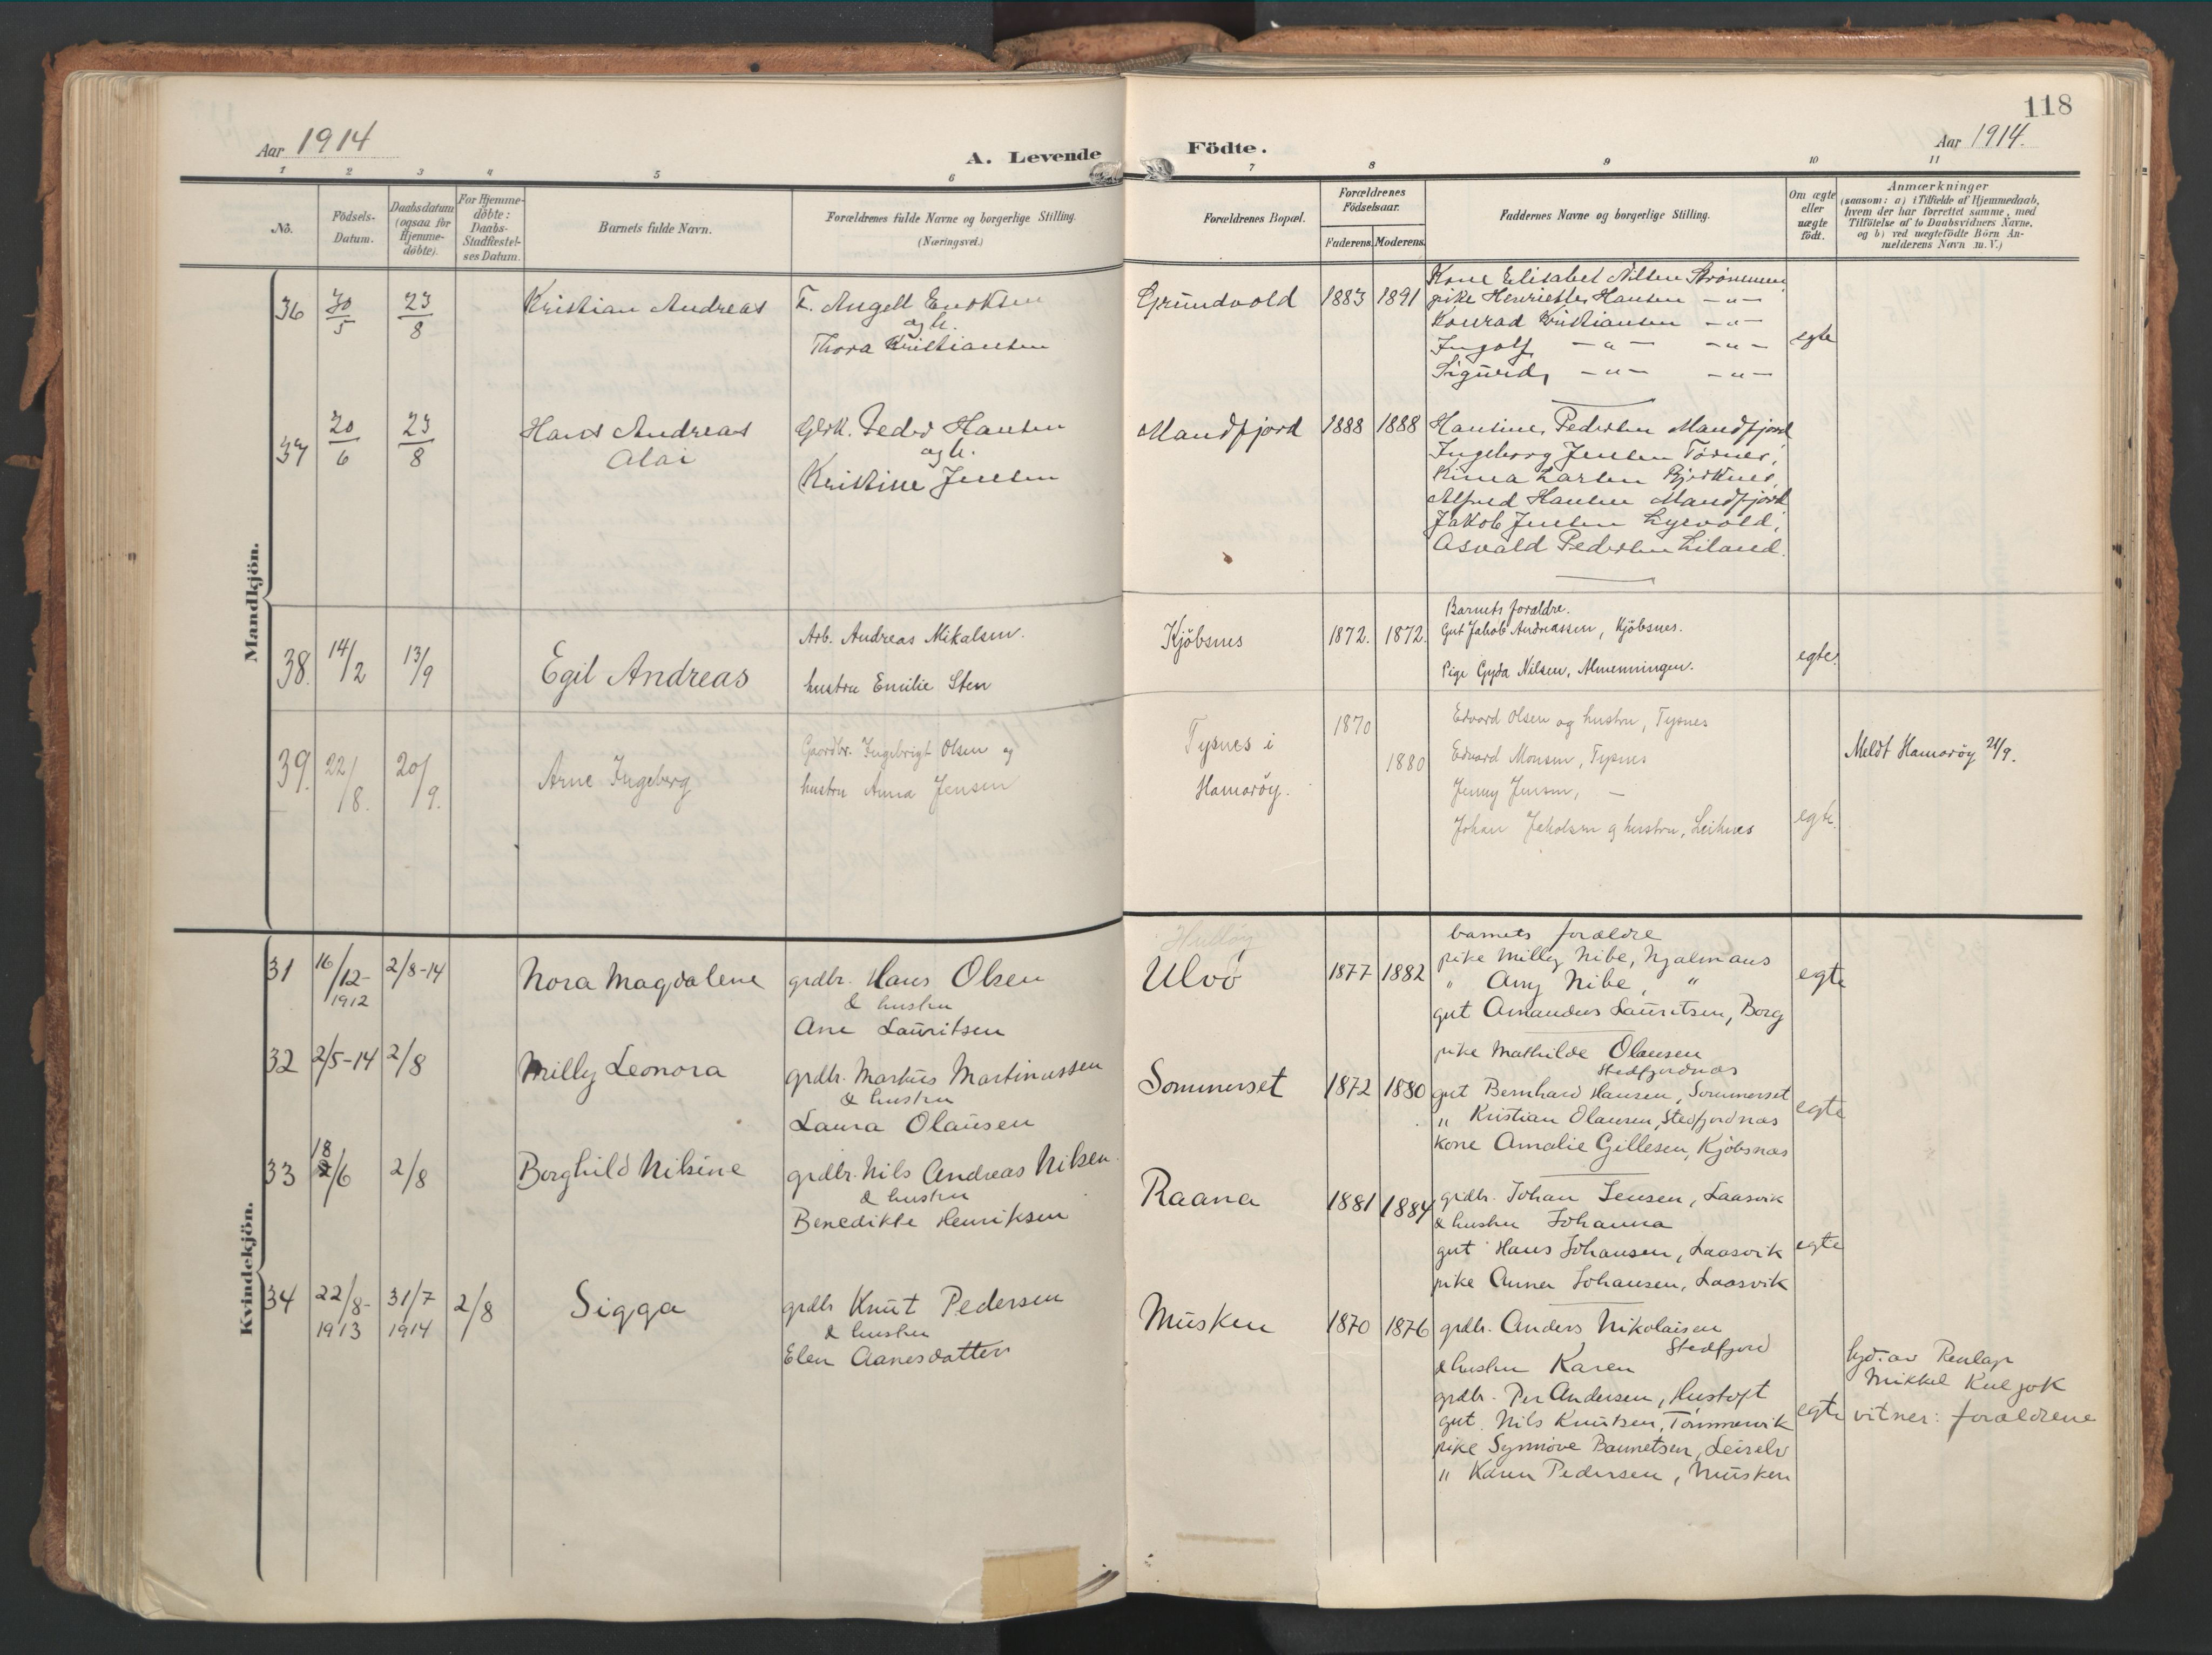 118
Aar 1914
A. Levende Födte.
Aar 1914.
1 2 3 4 5 6 7 8 9 10 11
No.
Födsels-
Datum.
Daabsdatum
(ogsaa for
Hjemme-
döbte).
For Hjemme-
döbte:
Daabs-
Stadfæstel-
ses Datum.
Barnets fulde Navn.
Forældrenes fulde Navne og borgerlige Stilling.
(Næringsvei.)
Forældrenes Bopæl.
Forældrenes
Födselsaar.
Faderens. Moderens.
Faddernes Navne og borgerlige Stilling.
Om ægte
eller
uægte
födt.
Anmærkninger
(saasom: a) i Tilfælde af Hjemmedaab,
hvem der har forrettet samme, med
Tilföielse af to Daabsvidners Navne,
og b) ved uægtefödte Börn An-
melderens Navn m. V.)
Mandkjön.
36 30/5 23/8 Kristian Andreas
F. Angell Enoksen
og h.
Thora Kristiansen
Grundvold 1883 1891
Kone Elisabet Nilsen Strømmen
pike Henriette Hansen — " —
Konrad Kristiansen — " —
Ingolf — " — — " —
Sigurd, — " — — " —
egte
37 20/6 23/8 Hans Andreas
Gbrk. Peder Hansen
og h.
Kristine Jensen
Mandfjord 1888 1888
Hansine Pedersen Mandfjord
Ingeborg Jensen
Larsen
Alfred Hansen Mandfjord
Jakob Jensen
Asvald Pedersen Liland.
38. 14/2 13/9 Egil Andreas
Arb. Andreas Mikalsen.
hustru Emilie Sten
Kjöbsnes 1872. 1872.
Barnets foraldre.
Gut Jakob Andreassen, Kjöbsnes.
Pige Gyda Nilsen, Almenningen.
egte.
39. 22/8. 20/9. Arne Ingeberg
Gaardbr. Ingebrigt Olsen og
hustru Anna Jensen
Tysnes i
Hamaröy.
1870
1880
Edvard Olsen og hustru, Tysnes
Edvard Monsen, Tysnes
Jenny Jensen, —
Johan Jakobsen og hustru, Leiknes
egte.
Meldt Hamaröy 21/9.
Kvindekjön.
31 16/12-1912 2/8-14 Nora Magdalene
grdbr. Hans Olsen
& hustru
Ane Lauritsen
Ulvø 1877 1882
barnets forældre
pike Milly Nibe, Hjalmaas
" Amy Nibe, "
gut Amandus Lauritsen, Borg
egte
32 2/5-14 2/8 Milly Leonora
grdbr. Markus Martinussen
& hustru
Laura Olausen
Sommerset 1872 1880
pike Mathilde Olausen
Stedfjordnas
gut Bernhard Hansen, Sommerset
" Kristian Olausen, Stedfjordnas
kone Amalie Gillesen, Kjøbsnas
egte
33 18/6 2/8 Borghild Nilsine
grdbr. Nils Andreas Nilsen
& hustru
Benedikte Henriksen
Raana 1881 1884
grdbr. Johan Jensen, Laasvik
& hustru Johanna
gut Hans Johansen, Laasvik
pike Anna Johansen, Laasvik
egte
34 22/8-1913 31/7 1914 2/8 Sigga
grdbr Knut Pedersen
& hustru
Elen Aanesdatter
Musken 1870 1876
grdbr. Anders Nikolaisen
Stedfjord
& hustru Karen
grdbr. Per Andersen, Hustoft
gut Nils Knutsen, Tømmervik
pike Synnöve Baunetsen, Leirelv
" Karen Pedersen, Musken
egte
hjd. av Renlap
Mikkel Kuljok
vitner: forældrene